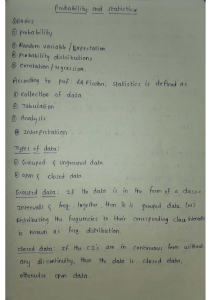 Probability and statistics
① probability
② Random variable / Expectation
③ Probability distributions
④ Correlation / regression
According to prof. RA Fischer, statistics is defined as
① collection of data
② Tabulation
③ Analysis
④ Interpretation
Types of data:
① Grouped & ungrouped data
② open & closed data
Grouped data: If the data is in the form of a class
Intervals & freq. together, then is grouped data (or)
Distributing the frequencies to their corresponding class intervals
is known as freq. distribution.
closed data: If the CI's are in continuous form without
any discontinuity, then the data is closed data,
otherwise open data.